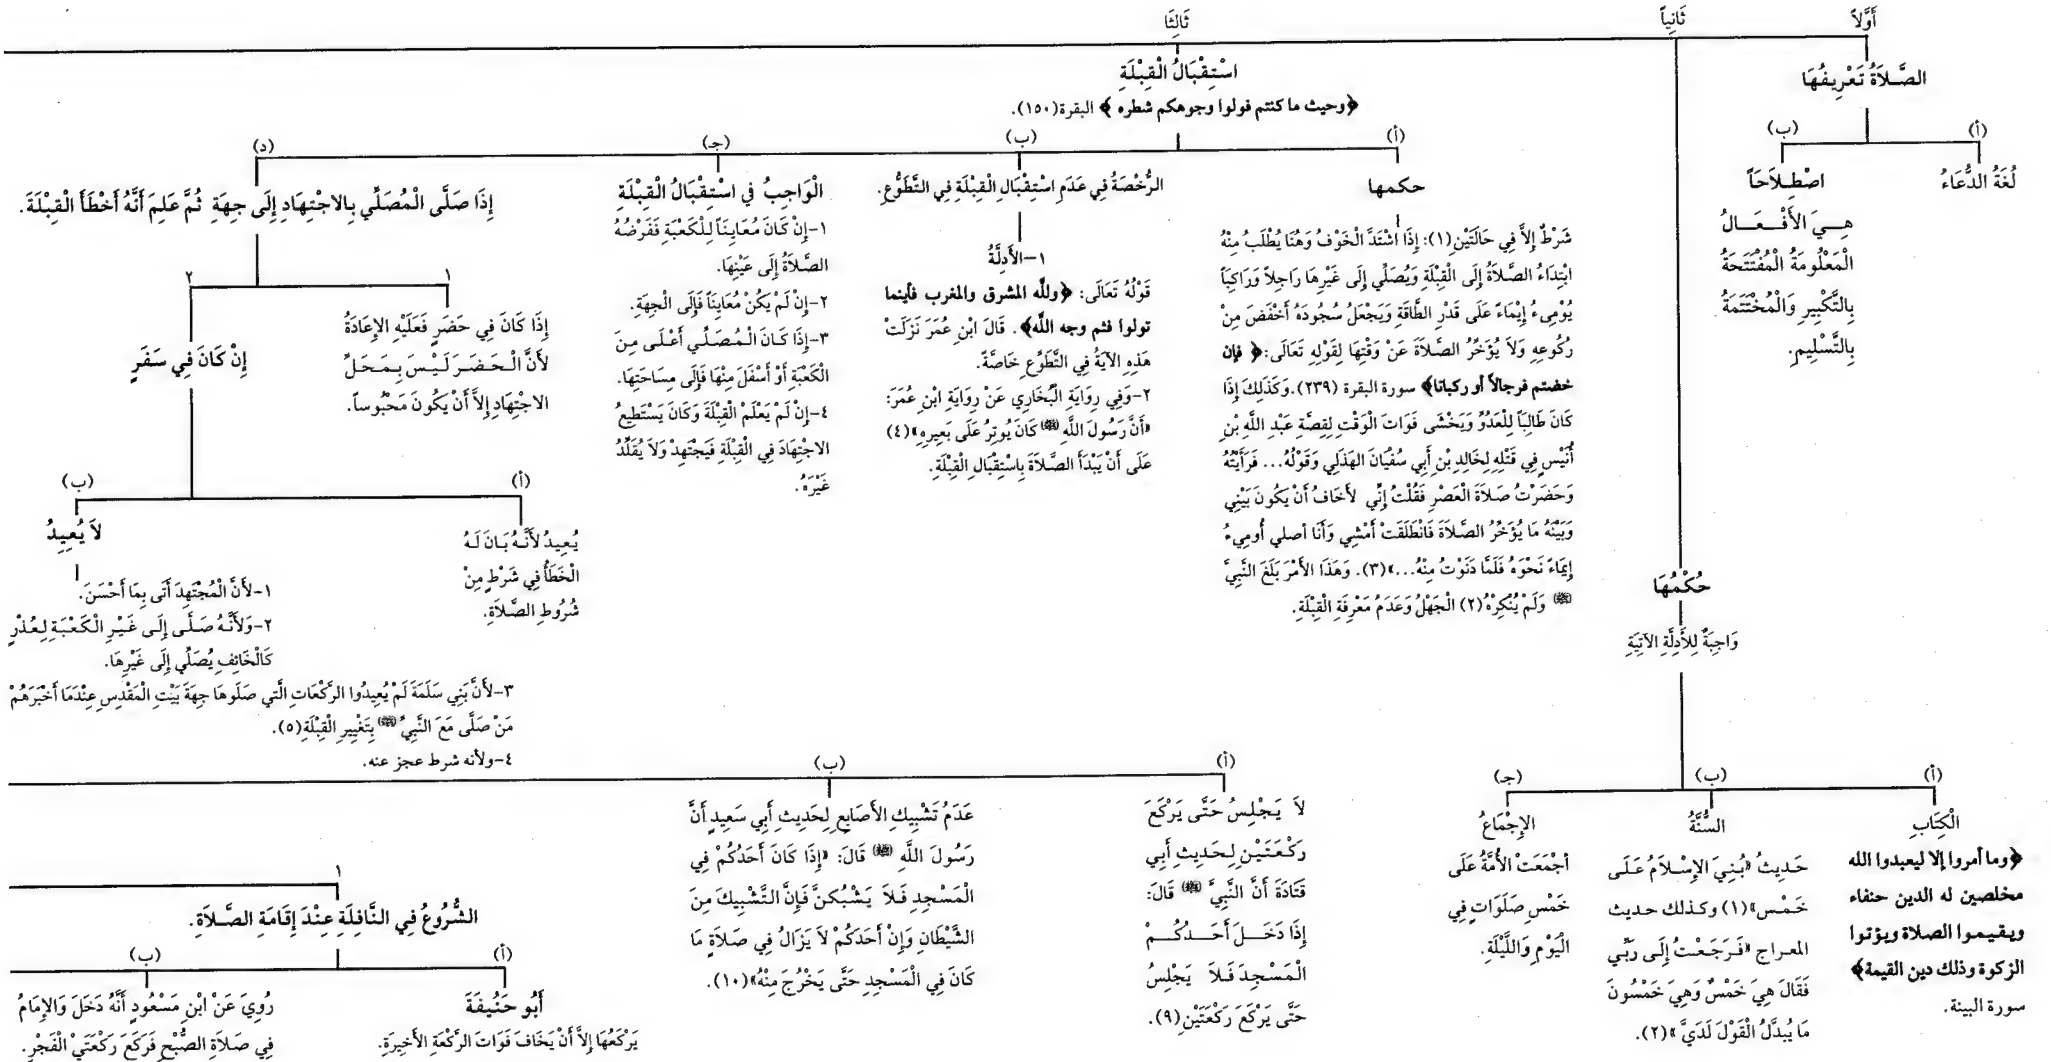 أَوَّلاً
ثَانِياً
ثَالِثَا
الصَّلاَةُ تَعْرِيفُهَا
(أ)
لُغَةُ الدُّعَاءُ
(ب)
اصْطِلاَحَاً
هِيَ الأَفْعَالُ
الْمَعْلُومَةُ الْمُفْتَتَحَةُ
بِالتَّكْبِيرِ وَالْمُخْتَتَمَةُ
بِالتَّسْلِيمِ.
حُكْمُهَا
وَاجِبَةٌ لِلأَدِلَّةِ الآتِيَةِ
(أ)
الْكِتَابِ
﴿وما أمروا إلا ليعبدوا الله
مخلصين له الدين حنفاء
ويقيموا الصلاة ويؤتوا
الزكوة وذلك دين القيمة﴾
سورة البينة.
(ب)
السُّنَّةُ
حَدِيثُ «بُنِيَ الإِسْلاَمُ عَلَى
خَمْس»(١) وكذلك حديث
المعراج «فَرَجَعْتُ إِلَى رَبِّي
فَقَالَ هِيَ خَمْسٌ وَهِيَ خَمْسُونَ
مَا يُبدَّلُ الْقَوْلَ لَدَيَّ»(٢).
(جـ)
الإِجْمَاعُ
أجْمَعَتْ الأُمَّةُ عَلَى
خَمْسِ صَلَوَاتٍ فِي
الْيَوْمِ وَاللَّيْلَةِ.
اسْتِقْبَالُ الْقِبْلَةِ
﴿وحيث ما كنتم فولوا وجوهكم شطره﴾ البقرة(١٥٠).
(أ)
حكمها
شَرْطٌ إِلاَّ فِي حَالَتَيْنِ(١): إِذَا اشْتَدَّ الْخَوْفُ وَهُنَا يُطْلَبُ مِنْهُ
ابْتِدَاءُ الصَّلاَةُ إِلَى الْقِبْلَةِ وَيُصَلِّي إِلَى غَيْرِهَا رَاجِلاً وَرَاكِبَاً
يُوْمِىءُ إِيْمَاءً عَلَى قَدْرِ الطَّاقَةِ وَيَجْعَلُ سُجُودَهُ أَخْفَضَ مِنْ
رُكُوعِهِ وَلاَ يُؤَخِّرُ الصَّلاَةَ عَنْ وَقْتِهَا لِقَوْلِهِ تَعَالَى: ﴿ فإن
خفتم فرجالاً أو ركباتا﴾ سورة البقرة (٢٣٩). وَكَذَلِكَ إِذَا
كَانَ طَالِبَاً لِلْعَدُوِّ وَيَخْشَى فَوَاتَ الْوَقْتِ لِقِصَّةِ عَبْدِ اللَّهِ بْنِ
أُنَيْسٍ فِي قَتْلِهِ لِخَالِدِ بْنِ أَبِي سُفْيَانَ الهَذَلِي وَقَوْلُهُ... فَرَأَيْتُهُ
وَحَضَرْتُ صَلاَةَ الْعَصْرِ فَقُلْتُ إِنِّي لأَخَافُ أَنْ يَكُونَ بَيْنِي
وَبَيْنَهُ مَا يُؤَخِّرُ الصَّلاَةَ فَانْطَلَقَتْ أَمْشِي وَأَنَا أصلي أُومِىءُ
إِيمَاءً نَحْوَهُ فَلَمَّا دَنَوْتُ مِنْهُ...»(٣). وَهَذَا الأَمْرُ بَلَغَ النَّبِيَّ
ﷺ وَلَمْ يُنْكِرْهُ (٢) الْجَهْلُ وَعَدَمُ مَعْرِفَةِ الْقِبْلَةِ.
(ب)
الرُّخْصَةُ فِي عَدَمِ اسْتِقْبَالِ الْقِبْلَةِ فِي التَّطَوُّعِ.
١-الأَدِلَّةُ
قَوْلُهُ تَعَالَى: ﴿ولله المشرق والمغرب فأينما
تولوا فثم وجه اللَّه﴾. قَالَ ابْنِ عُمَرَ نَزَلَتْ
هَذِهِ الآيَةُ فِي التَّطَوُّعِ خَاصَّةً.
٢-وَفِي رِوَايَةِ الْبُخَارِي عَنْ رِوَايَةِ ابْنِ عُمَرَ:
«أَنَّ رَسُولَ اللَّهِ ﷺ كَانَ يُوتِرُ عَلَى بَعِيرِهِ»(٤)
عَلَى أَنْ يَبْدَأَ الصَّلاَةَ بِاسْتِقْبَالِ الْقِبْلَةِ.
(جـ)
الْوَاجِبُ فِي اسْتِقْبَالُ الْقِبْلَةِ
١-إِنْ كَانَ مُعَايِنَاً لِلْكَعْبَةِ فَفَرْضُهُ
الصَّلاَةُ إِلَى عَيْنِهَا.
٢-إِنْ لَمْ يَكُنْ مُعَايِنَاً فَإِلَى الْجِهَةِ.
٣-إِذَا كَانَ الْمُصَلِّي أَعْلَى مِنَ
الْكَعْبَةِ أَوْ أَسْفَلَ مِنْهَا فَإِلَى مِسَاحَتِهَا.
٤-إِنْ لَمْ يَعْلَمْ الْقِبْلَةَ وَكَانَ يَسْتَطِيعُ
الاجْتِهَادَ فِي الْقِبْلَةِ فَيَجْتَهِدْ وَلاَ يُقَلِّدُ
غَيْرَهُ.
(د)
إِذَا صَلَّى الْمُصَلِّي بِالاجْتِهَادِ إِلَى جِهَةٍ ثُمَّ عَلِمَ أَنَّهُ أَخْطَأَ الْقِبْلَةَ.
١
إِذَا كَانَ فِي حَضَرٍ فَعَلَيْهِ الإِعَادَةُ
لأَنَّ الْحَضَرَ لَيْسَ بِمَحَلِّ
الاجْتِهَادِ إِلاَّ أَنْ يَكُونَ مَحْبُوساً.
٢
إِنْ كَانَ فِي سَفَرٍ
(أ)
يُعِيدُ لأَنَّهُ بَانَ لَهُ
الْخَطَأُ فِي شَرْطٍ مِنْ
شُرُوطِ الصَّلاَةِ.
(ب)
لاَ يُعِيدُ
١-لأَنَّ الْمُجْتَهِدَ أَتَى بِمَا أَحْسَنَ.
٢-وَلأَنَّهُ صَلَّى إِلَى غَيْرِ الْكَعْبَةِ لِعُذْرٍ
كَالْخَائِفِ يُصَلِّي إِلَى غَيْرِهَا.
٣-لأَنَّ بَنِي سَلَمَةَ لَمْ يُعِيدُوا الرَّكْعَاتِ الَّتِي صَلَوهَا جِهَةَ بَيْتِ الْمَقْدِسِ عِنْدَمَا أَخْبَرَهُمْ
مَنْ صَلَّى مَعَ النَّبِيِّ ﷺ بِتَغْيِيرِ الْقِبْلَةِ(٥).
٤-ولأنه شرط عجز عنه.
(أ)
لاَ يَجْلِسُ حَتَّى يَرْكَعَ
رَكْعَتَيْنِ لِحَدِيثِ أَبِي
قَتَادَةَ أَنَّ النَّبِيَّ ﷺ قَالَ:
إِذَا دَخَلَ أَحَدُكُمْ
الْمَسْجِدَ فَلاَ يَجْلِسُ
حَتَّى يَرْكَعَ رَكْعَتَيْنِ(٩).
(ب)
عَدَمُ تَشْبِيكِ الأَصَابِعِ لِحَدِيثِ أَبِي سَعِيدٍ أَنَّ
رَسُولَ اللَّهِ ﷺ قَالَ: «إِذَا كَانَ أَحَدُكُمْ فِي
الْمَسْجِدِ فَلاَ يَشْبُكنَّ فَإِنَّ التَّشْبِيكَ مِنَ
الشَّيْطَانِ وَإِنْ أَحَدَكُمْ لاَ يَزَالُ فِي صَلاَةٍ مَا
كَانَ فِي الْمَسْجِدِ حَتَّى يَخْرُجَ مِنْهُ»(١٠).
١
الشُّرُوعُ فِي النَّافِلَةِ عِنْدَ إِقَامَةِ الصَّلاَةِ.
(أ)
أَبُو حَنُيفَةَ
يَرْكَعُهَا إِلاَّ أَنْ يَخَافَ فَوَاتَ الرَّكْعَةِ الأَخِيرَةِ.
(ب)
رُوِيَ عَنْ ابْنِ مَسْعُودٍ أَنَّهُ دَخَلَ وَالإِمَامُ
فِي صَلاَةِ الصُّبْحِ فَرَكَعَ رَكْعَتَيْ الْفَجْرِ.